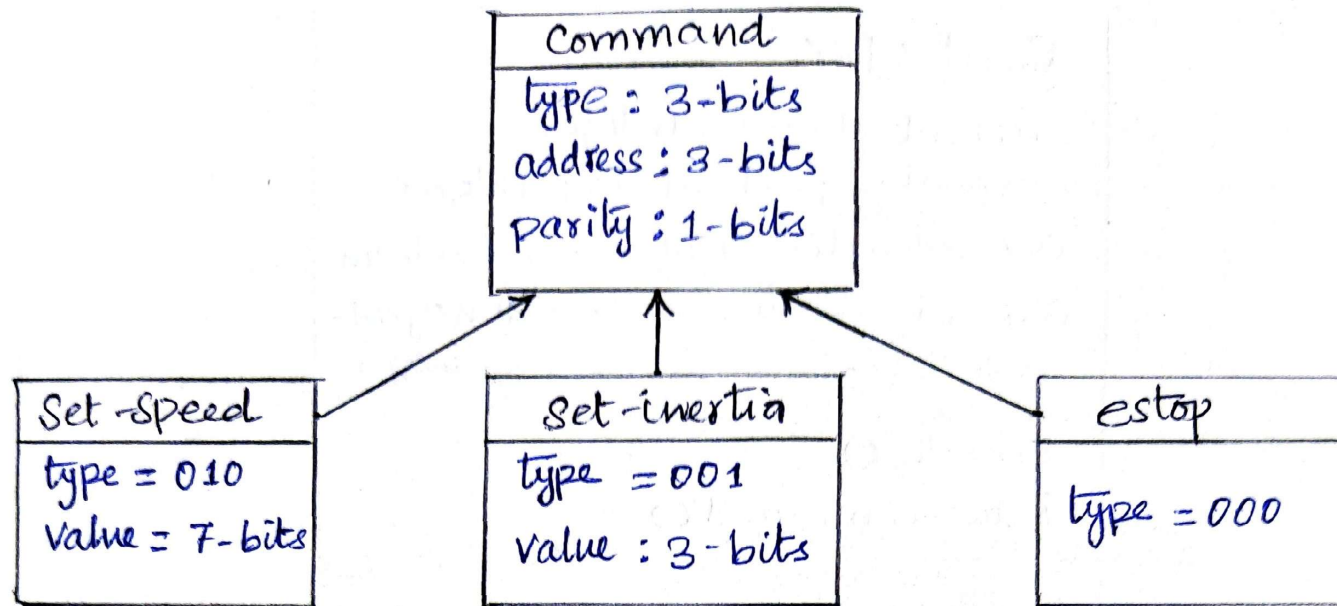 Command
type : 3-bits
address : 3-bits
parity : 1-bits
Set-speed
type = 010
Value = 7-bits
Set-inertia
type = 001
value : 3-bits
estop
type = 000